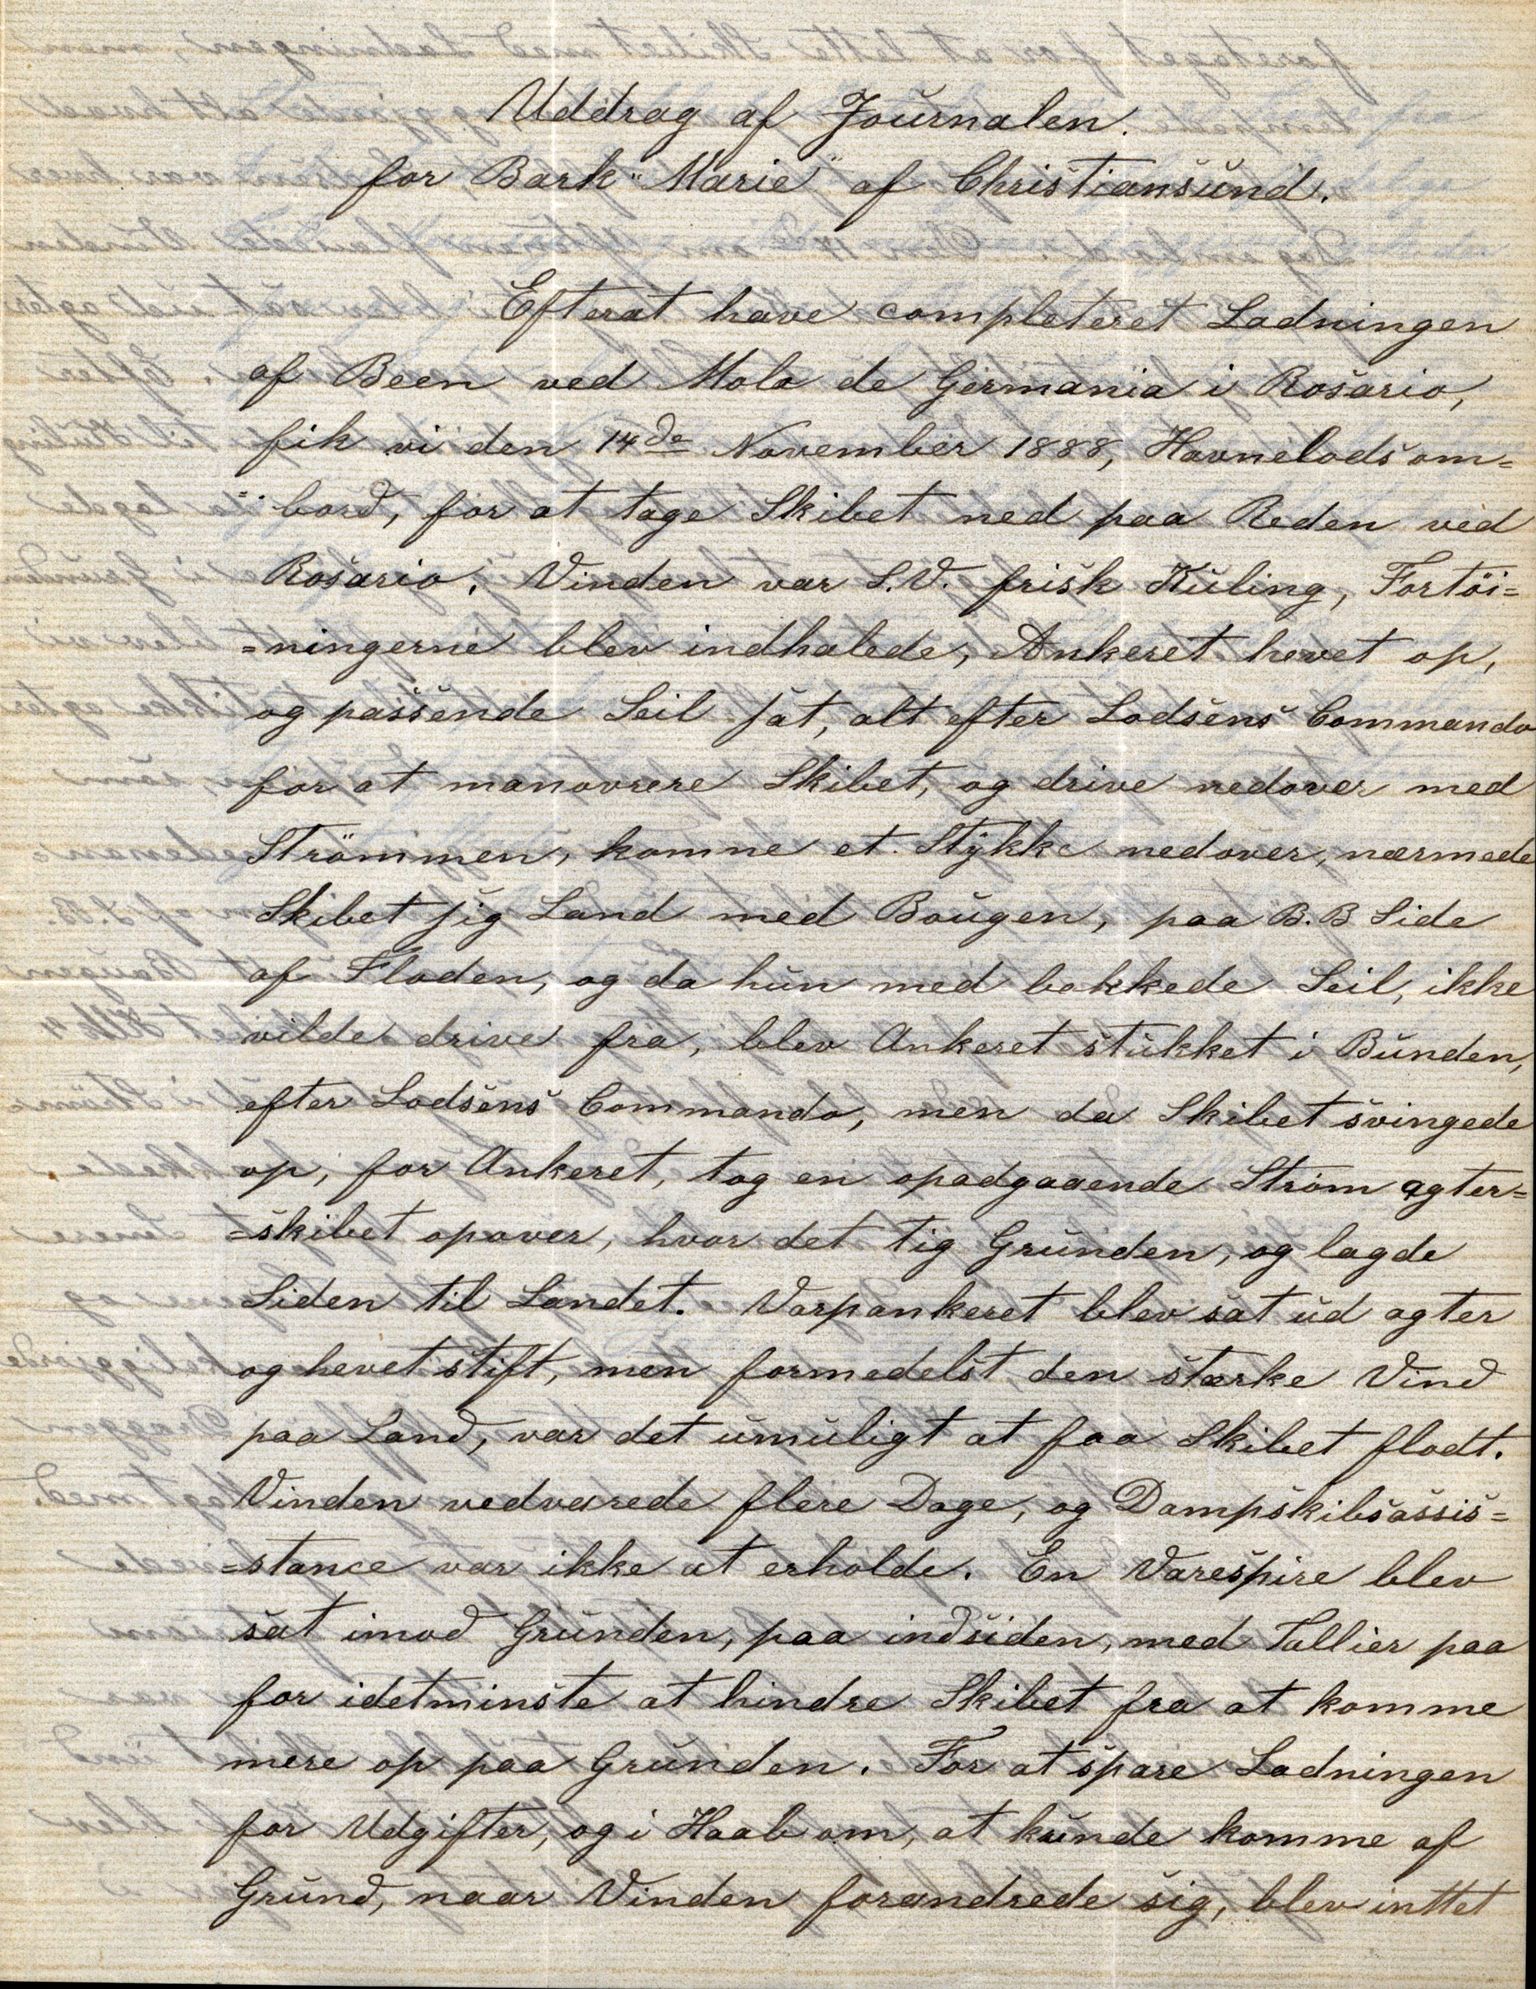 Uddrag af Journalen.
for Bark "Marie" af Christiansund.
Efterat have completeret Ladningen
af Been ved Molo de Germania i Rosario,
fik vi den 14de November 1888, Havnelods om=
=bord, for at tage Skibet ned paa Reden ved
Rosario. Vinden var S.V. frisk Kuling, Fortöi=
=ningerne blev indhalede, Ankeret hevet op,
og passende Seil sat, alt efter Lodsens Commando
for at manovrere Skibet, og drive nedover med
Strömmen, komne et Stykke nedover, nærmede
Skibet sig Land med Bougen, paa B.B Side
af Floden, og da hun med bakkede Seil, ikke
vilde drive fra, blev Ankeret stukket i Bunden,
efter Lodsens Commando, men da Skibet svingede
op, for Ankeret, tog en opadgaaende Strøm agter=
=skibet opover, hvor det tig Grunden, og lagde
Siden til Landet. Varpankeret blev sat ud agter
og hevet stift, men formedelst den stærke Vind
paa Land, var det umuligt at faa Skibet flodt.
Vinden vedvarede flere Dage, og Dampskibsassis=
=stance var ikke at erholde. En Varespire blev
sat imod Grunden, paa indsiden, med Tallier paa
for idetminste at hindre Skibet fra at komme
mere op paa Grunden. For at spare Ladningen
for Udgifter, og i Haab om, at kunde komme af
Grund, naar Vinden forandrede sig, blev inttet